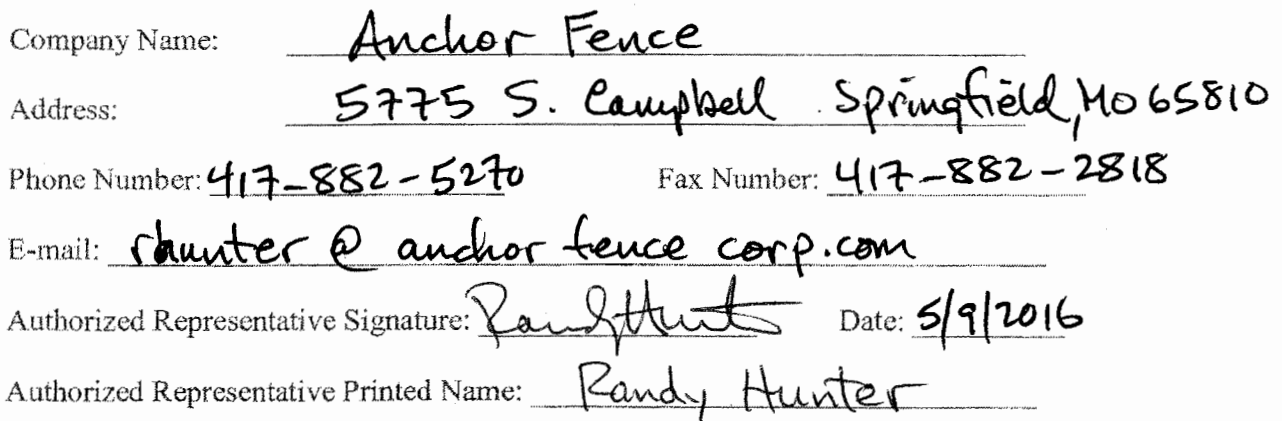 Company Name: Anchor Fence
Address: 5775 S. Campbell Springfield, MO 65810
Phone Number: 417-882-5270 Fax Number: 417-882-2818
E-mail: rhunter @ anchor fence corp.com
Authorized Representative Signature: Randy Hunter Date: 5/9/2016
Authorized Representative Printed Name: Randy Hunter